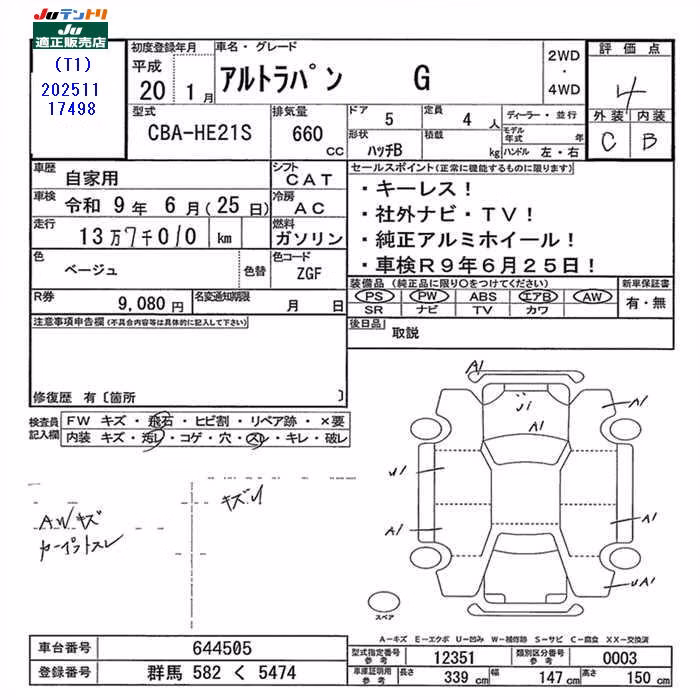 JUテントリ
Ju
適正販売店
(T1)
202511
17498
初度登録年月
平成
20 1月
車名・グレード
アルトラパン G
2WD
・
4WD
評価点
4
外装 内装
C B
型式
CBA-HE21S
排気量
660 CC
ドア 5
定員 4人
形状 ハッチB
積載 kg
ディーラー・並行
モデル年式 年
ハンドル 左・右
車歴 自家用
シフト CAT
車検 令和 9年 6月(25日)
冷房 AC
走行 13万7千010 km
燃料 ガソリン
色 ベージュ
色替
色コード ZGF
R券 9,080円
名変通知期限 月 日
セールスポイント(正常に機能するものに限ります)
・キーレス!
・社外ナビ・TV!
・純正アルミホイール!
・車検R9年6月25日!
装備品(純正品に限り〇をつけてください)
PS PW ABS エアB AW
SR ナビ TV カワ
新車保証書
有・無
後日品 取説
注意事項申告欄(不具合内容等は具体的に記入して下さい)
修復歴 有〔箇所 〕
検査員記入欄
FW キズ・飛石・ヒビ割・リペア跡・×要
内装 キズ・汚レ・コゲ・穴・スレ・キレ・破レ
AWキズ
カーペットスレ
キズU
A1
U1
A1
A1
U1
A1
A1
UA1
スペア
A-キズ E-エクボ U-凹み W-補修跡 S-サビ C-腐食 XX-交換済
車台番号 644505
登録番号 群馬 582 く 5474
型式指定番号 参考 12351
類別区分番号 参考 0003
車庫証明用 参考 長さ 339cm 幅 147cm 高さ 150cm